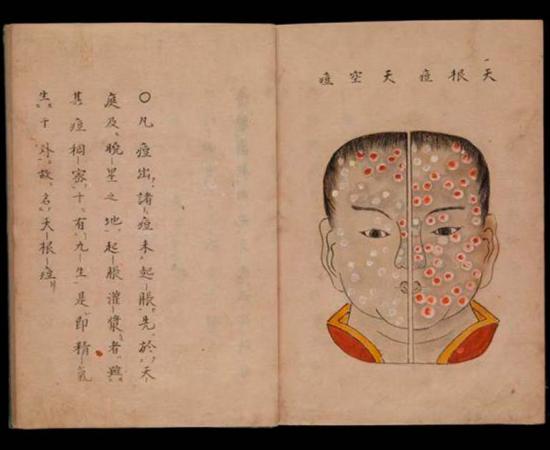 天根痘 天空痘
○凡痘出諸痘未起脹先於天
庭及晩星之地起脹灌漿者雖
其痘稠密十有九生是即精氣
生于外故名天根痘